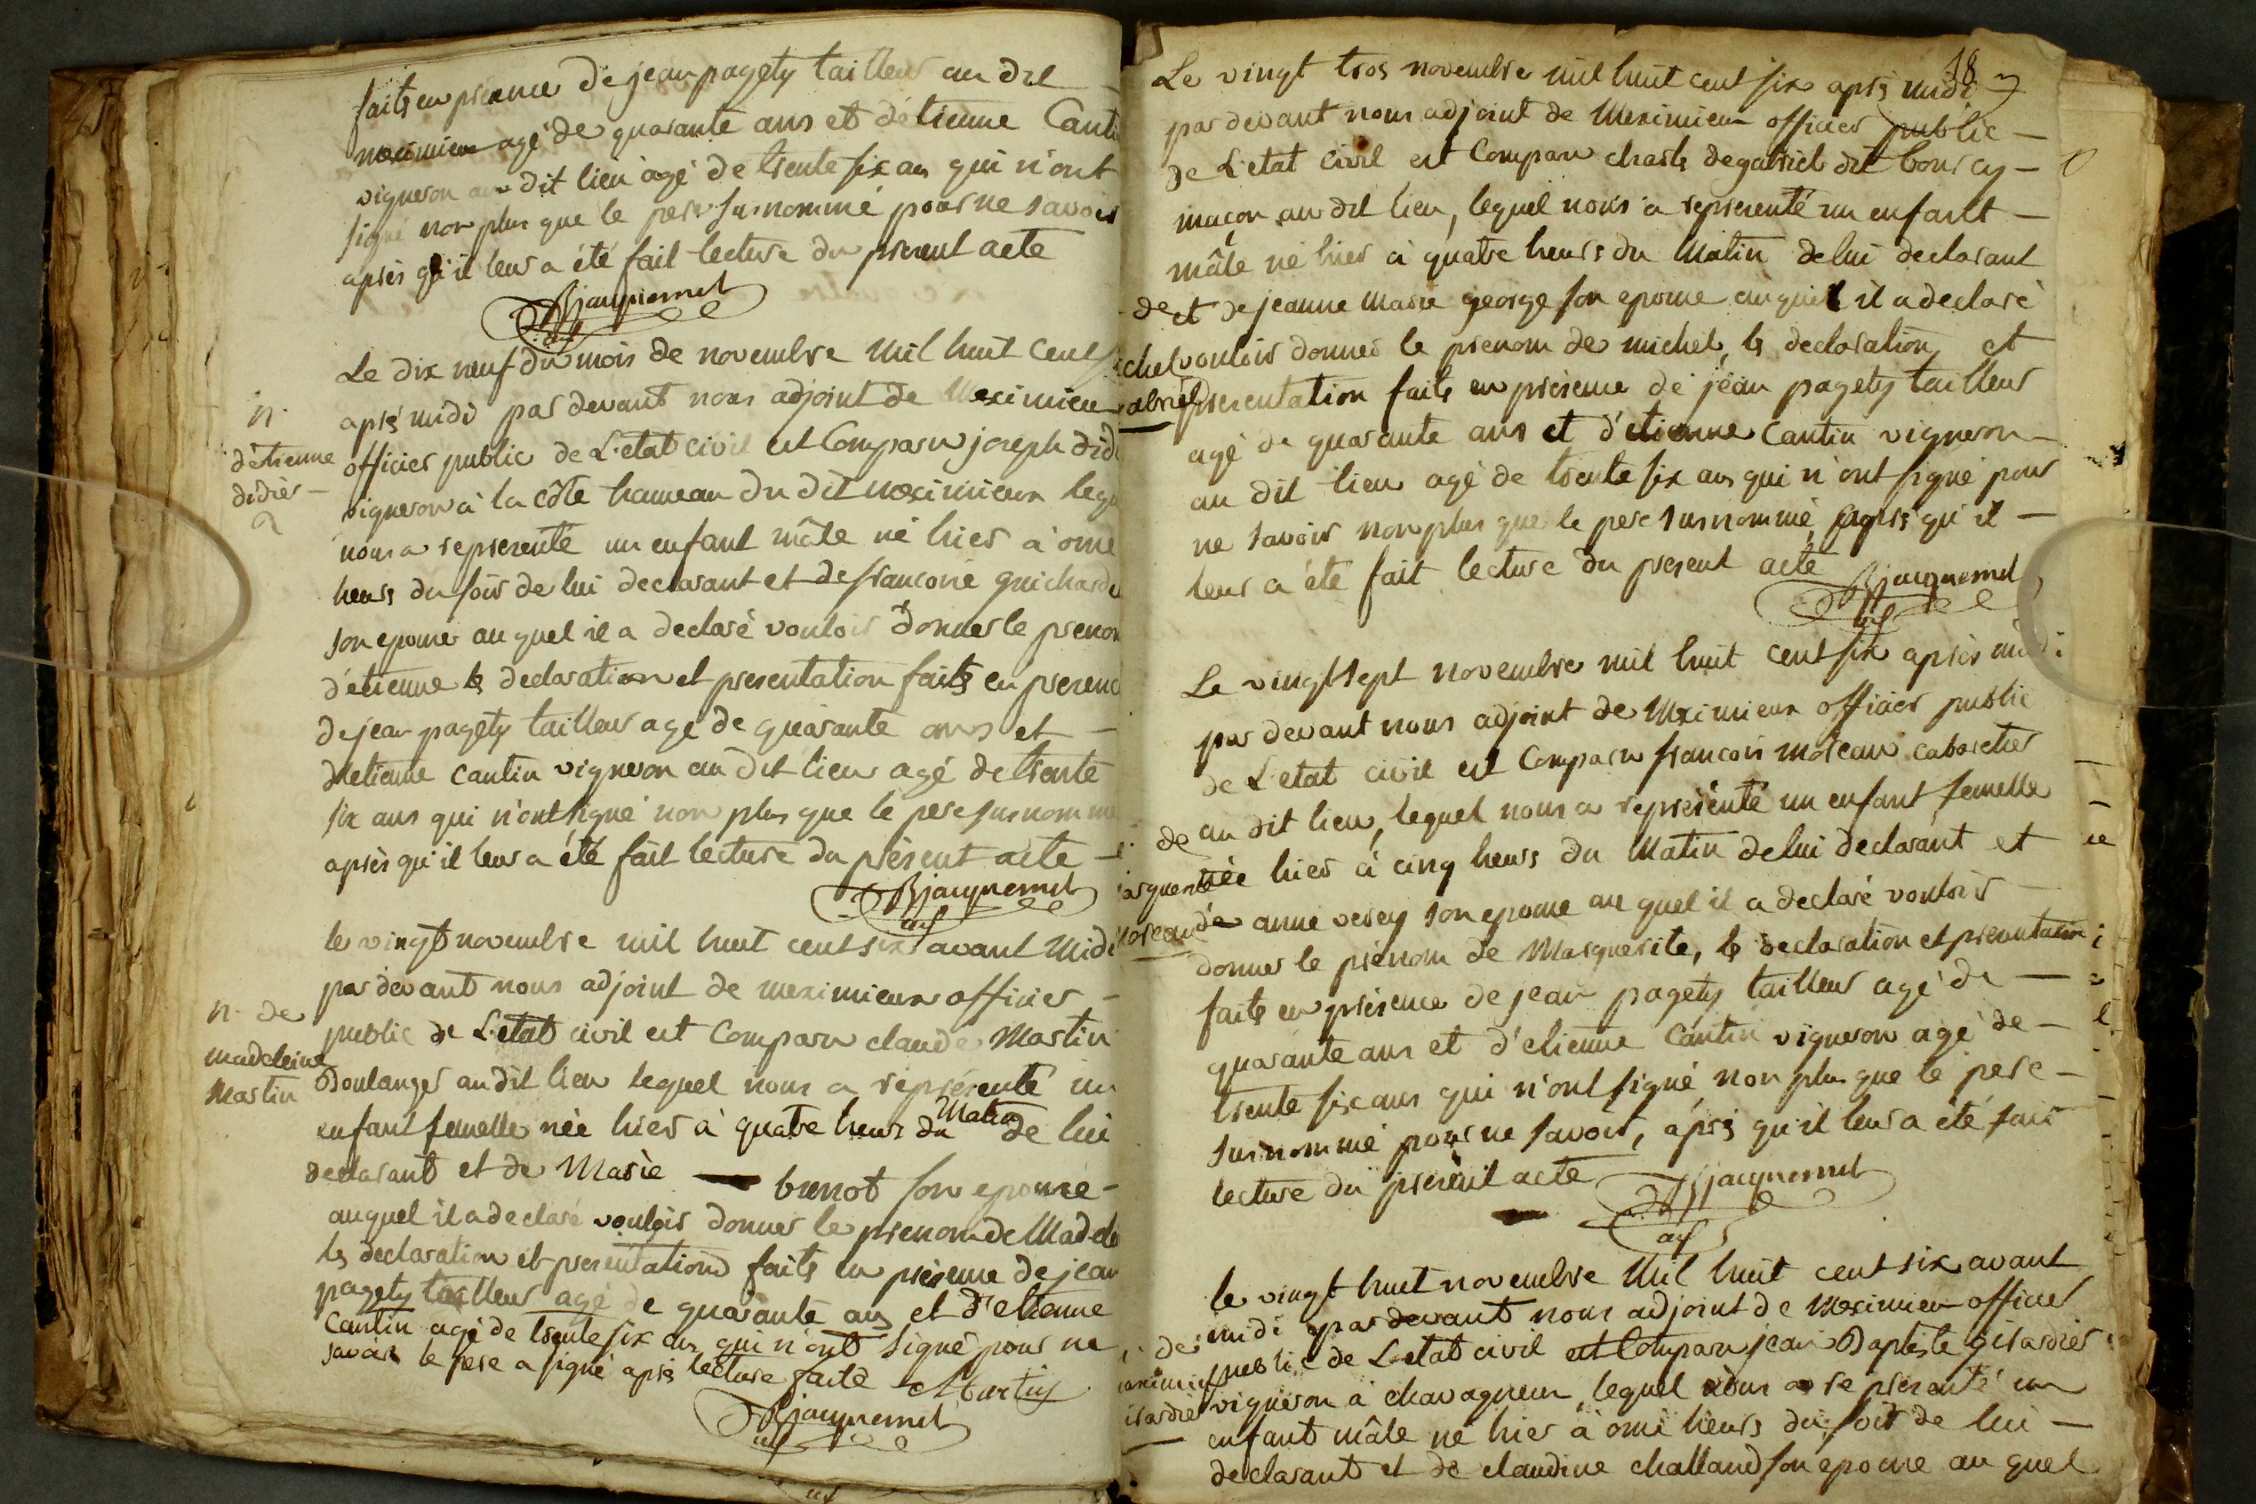 faits en presence de jean pagety tailleur au dit
meximieux agé de quarante ans et détienne Canti
vigneron au dit lieu agé de trente six ans qui n'ont
signé non plus que le pere susnommé pour ne savoir
après qu'il leur a été fait lecture du present acte
Bjacquemet
adj
Le dix neuf du mois de novembre mil huit cent
n.
d'etienne
didier
après midi par devant nous adjoint de Meximieux
officier public de L'etat civil est Comparu joseph did
vigneron à la côte hameau du dit meximieux leq
nous a representé un enfant mâle né hier à onze
heurs du soir de lui declarant et de francoise guichard
son epouse auquel il a declaré vouloir donner le prenom
d'etienne ls declaration et presentation faits en presence
de jean pagety tailleur agé de quarante ans et
d'etienne cantin vigneron au dit lieu agé de trente
six ans qui n'ont signé non plus que le pere susnommé
après qu'il leur a été fait lecture du présent acte
Bjacquemet
adj
n. de
madeleine
Martin
le vingt novembre mil huit cent six avant Midi
par devant nous adjoint de meximieux officier
public de L'etat civil est Comparu claude Martin
Boulanger au dit lieu lequel nous a représenté un
enfant femelle née hier à quatre heurs du Matin de lui
declarant et de Marie brenot son epouse
auquel il a declaré vouloir donner le prenom de Madele
ls declaration et presentation faits en présence de jean
pagety tailleur agé de quarante ans et d'etienne
Cantin agé de trente six ans qui n'ont signé pour ne
savoir le pere a signé après lecture faite CMartin
Bjacquemet
adj
18
Le vingt trois novembre mil huit cent six après midi
par devant nous adjoint de Meximieux officier public
de L'etat civil est Comparu charle degabriel dit bourcy
maçon au dit lieu, lequel nous a representé un enfant
mâle né hier à quatre heurs du Matin de lui declarant
de
et de jeanne Marie george son epouse auquel il a declaré
ichel
vouloir donner le prenom de michel, ls declaration et
abriel
presentation faits en présence de jean pagety tailleur
agé de quarante ans et d'etienne Cantin vigneron
au dit lieu agé de trente six ans qui n'ont signé pour
ne savoir non plus que le pere susnommé, après qu'il
leur a été fait lecture du present acte
Bjacquemet
adj
Le vingt sept novembre mil huit cent six après midi
par devant nous adjoint de Meximieux officier public
de L'etat civil est Comparu francois moreau cabaretier
de
au dit lieu, lequel nous a représenté un enfant femelle
arguerite
née hier à cinq heurs du Matin de lui declarant et
moreau
de anne verey son epouse au quel il a declaré vouloir
donner le prénom de Marguerite, ls declaration et presentation
faits en présence de jean pagety tailleur agé de
quarante ans et d'etienne Cantin vigneron agé de
trente six ans qui n'ont signé, non plus que le pere
susnommé pour ne savoir, après qu'il leur a été fait
lecture du présent acte
Bjacquemet
adj
le vingt huit novembre Mil huit cent six avant
midi par devant nous adjoint de Meximieux officier
de
public de L'etat civil est Comparu jean Baptiste girardier
irardier
vigneron à chavagneux, lequel nous a représenté un
enfant mâle né hier à onze heurs du soir de lui
declarant et de claudine challand son epouse au quel